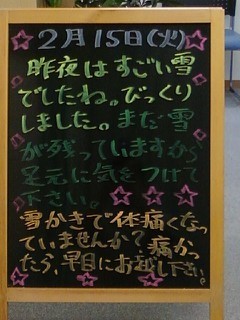 2月15日(火)
昨夜はすごい雪
でしたね。びっくり
しました。まだ雪
が残っていますから
足元に気をつけて
下さい。
雪かきで体痛くなっ
ていませんか?痛かっ
たら、早目にお越し下さい。